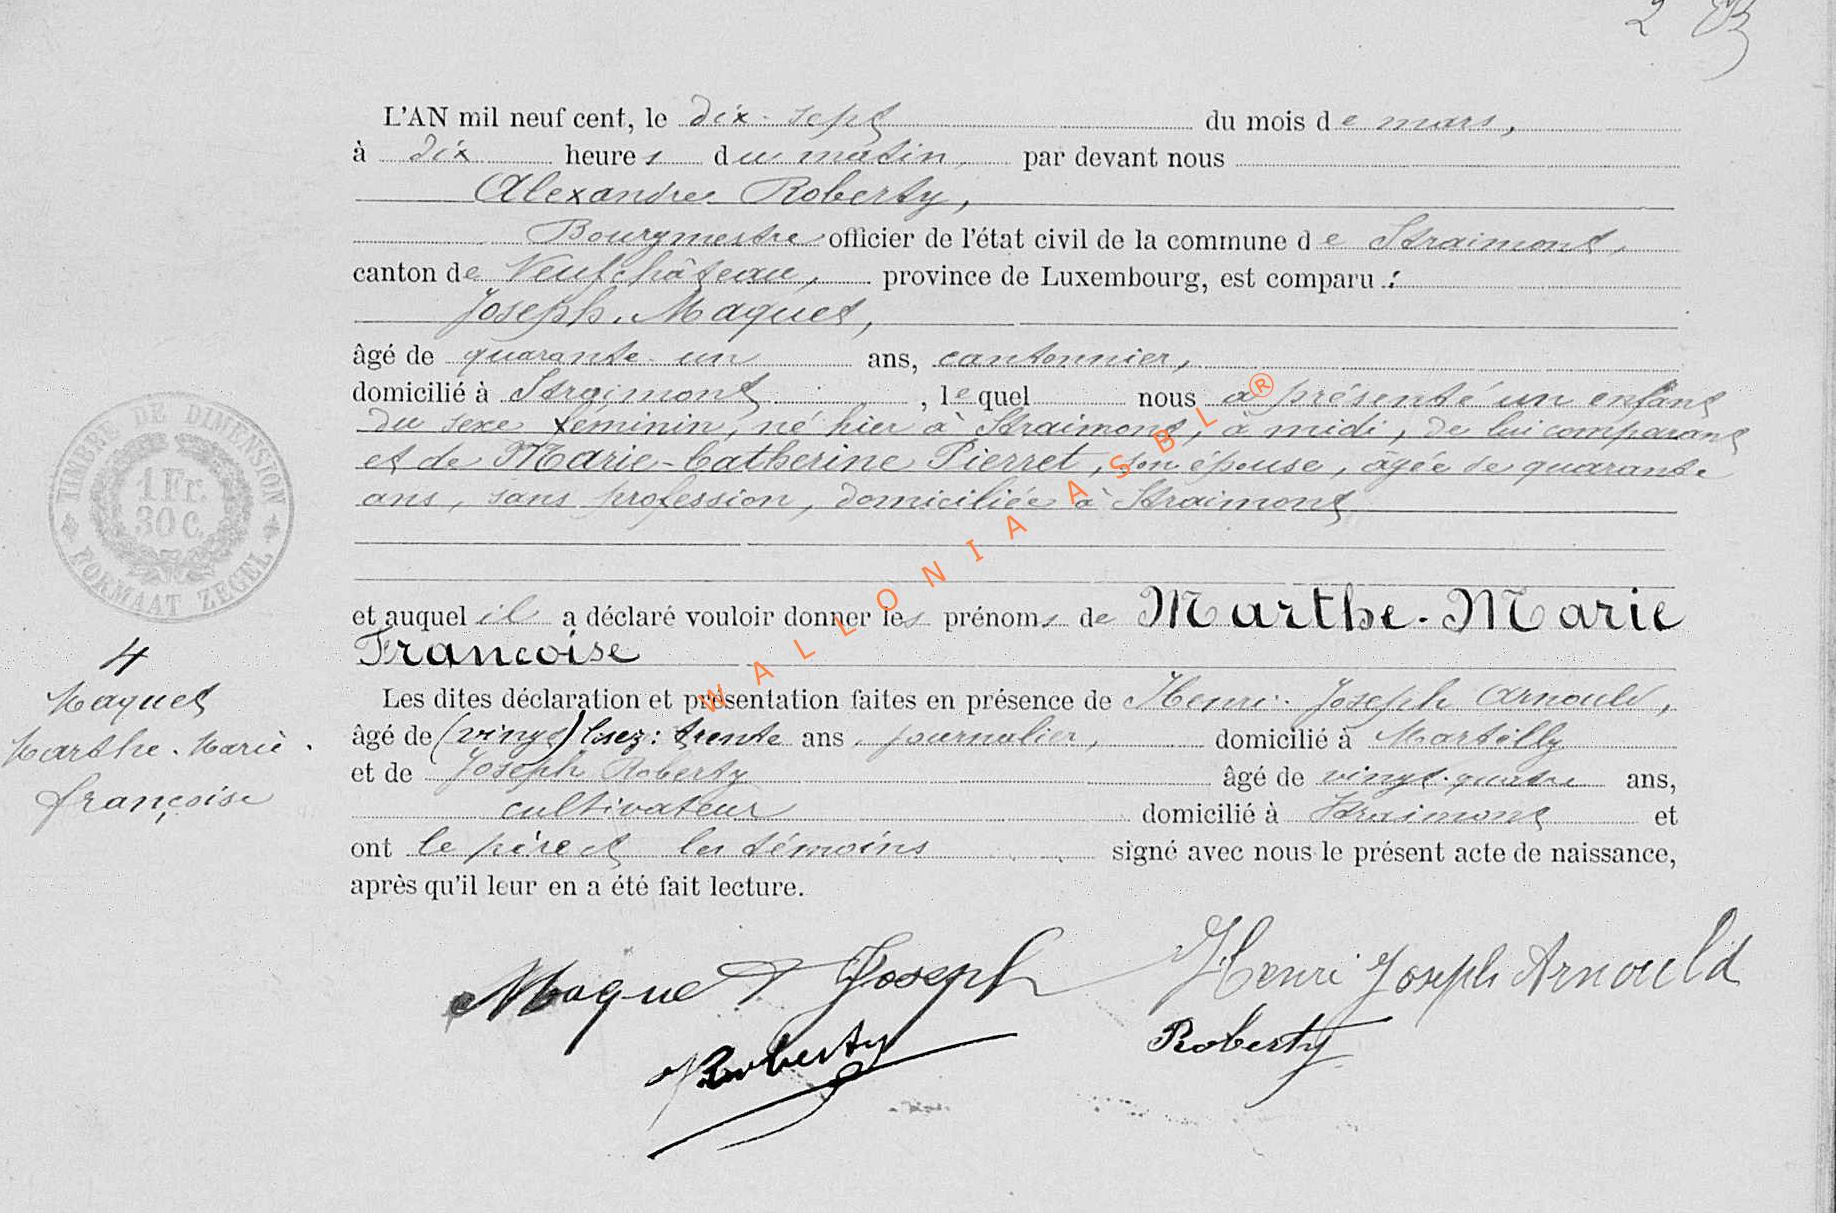 2
L'AN mil neuf cent, le dix-sept du mois de mars,
à dix heures du matin, par devant nous
Alexandre Roberty,
Bourgmestre officier de l'état civil de la commune de Straimont,
canton de Neufchâteau, province de Luxembourg, est comparu :
Joseph Maquet,
âgé de quarante-un ans, cantonnier,
domicilié à Straimont, lequel nous a présenté un enfant
du sexe féminin, né hier à Straimont, à midi, de lui comparant
et de Marie-Catherine Pierret, son épouse, âgée de quarante
ans, sans profession, domiciliée à Straimont
et auquel il a déclaré vouloir donner les prénoms de Marthe-Marie
Francoise
Les dites déclaration et présentation faites en présence de Henri-Joseph Arnould,
âgé de (vingt) lisez: trente ans, journalier, domicilié à Martilly
et de Joseph Roberty âgé de vingt-quatre ans,
cultivateur domicilié à Straimont et
ont le père et les témoins signé avec nous le présent acte de naissance,
après qu'il leur en a été fait lecture.
Maquet Joseph Henri Joseph Arnould
Roberty Roberty
TIMBRE DE DIMENSION
1 Fr.
30 C.
FORMAAT ZEGEL
4
Maquet
Marthe-Marie-
françoise
WALLONIA ASBL ®